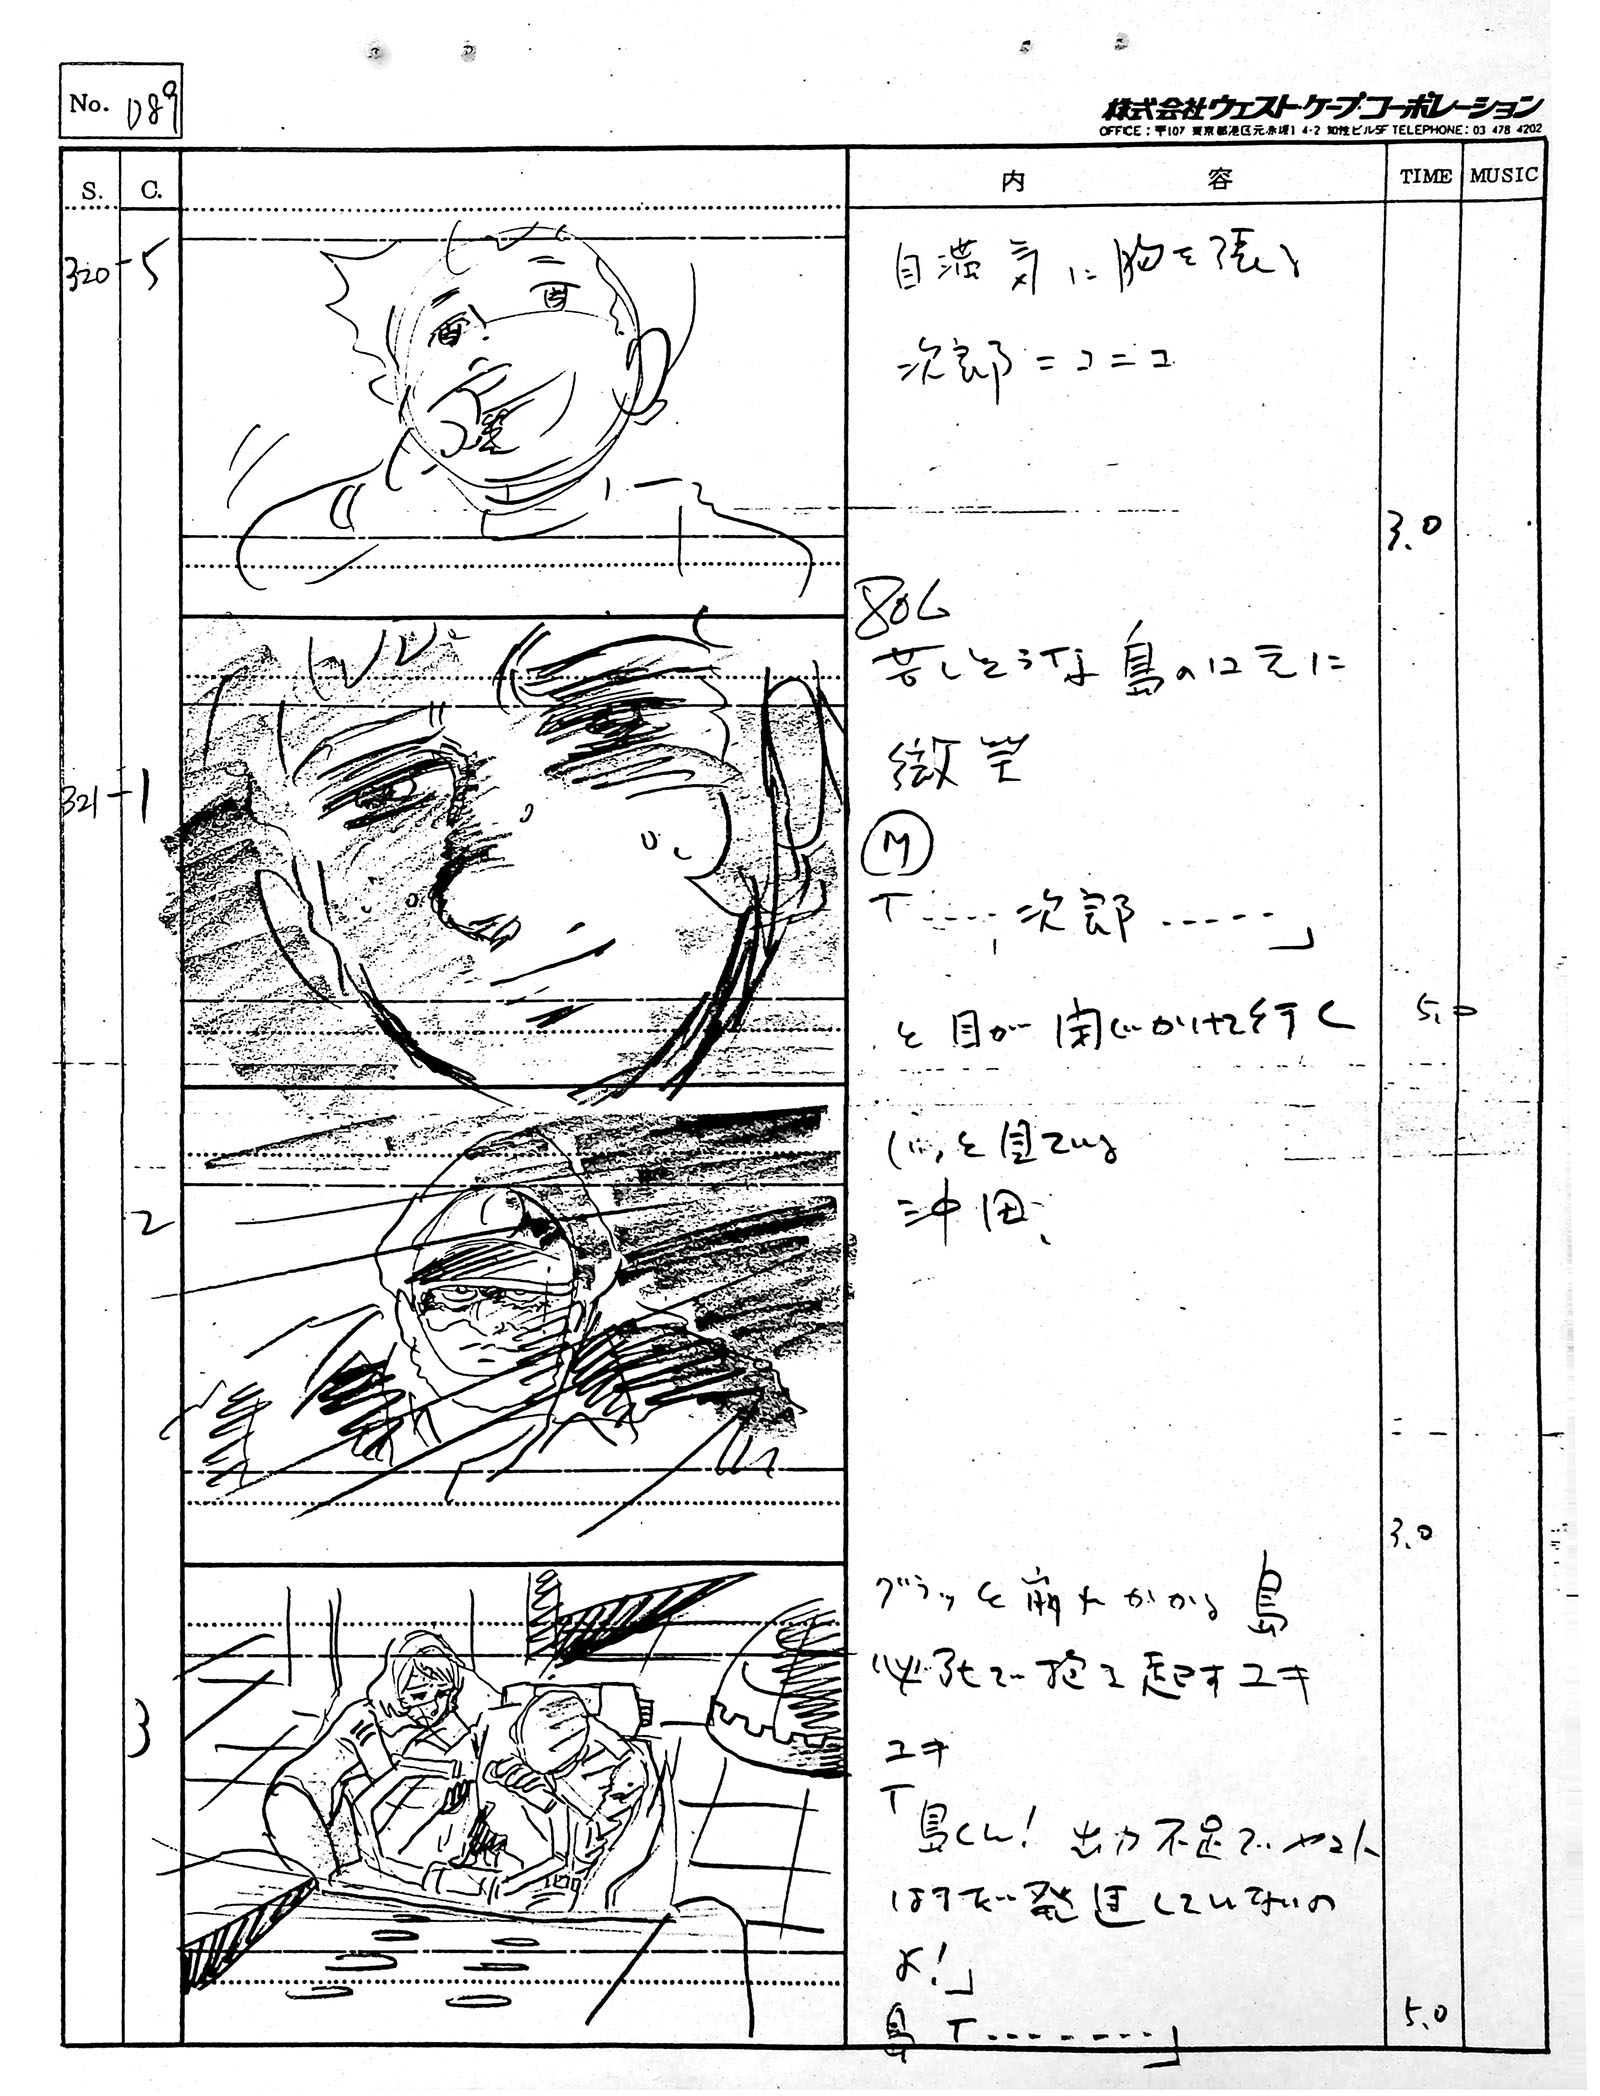 No. 089
株式会社ウェスト・ケープ・コーポレーション
OFFICE : 〒107 東京都港区元赤坂1 4-2 知性ビル5F TELEPHONE : 03 478 4202
S. C. 内 容 TIME MUSIC
320-5
自満気に胸を張る
次郎ニコニコ
3.0
806
321-1
苦しそうな島の口元に
微笑
M
「……次郎……」
と目が閉じかけて行く
5.0
2
じっと見ている
沖田、
3.0
3
グラッと崩れかかる島
必死で抱き起すユキ
ユキ
「島くん! 出力不足でヤマト
はまだ発進していないの
よ!」
島「………」
5.0